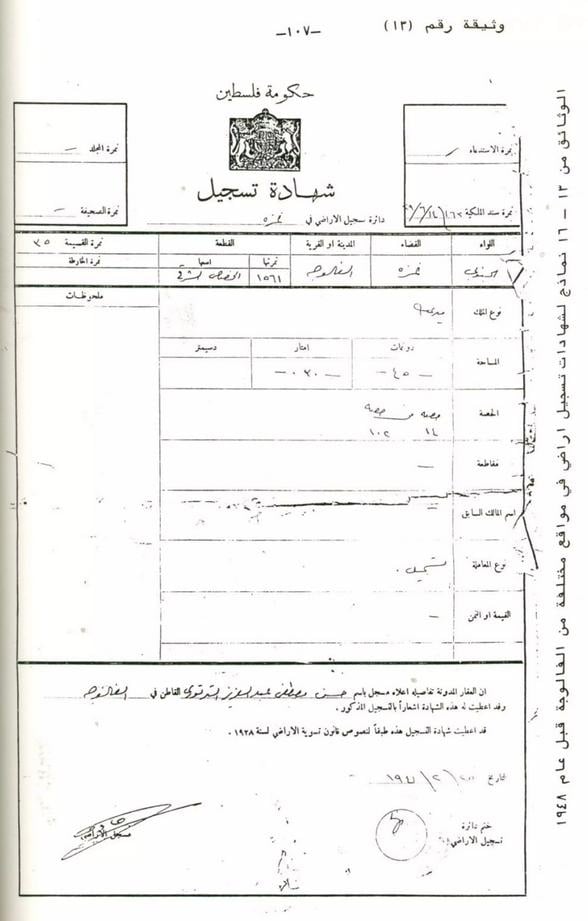 وثيقة رقم (١٣)
-١٠٧-
حكومة فلسطين
نمرة الاستدعاء
نمرة المجلد —
نمرة سند الملكية
نمرة الصحيفة —
شهادة تسجيل
دائرة سجيل الاراضي في غزه
اللواء القضاء المدينة او القرية القطعة نمرة القسيمة ٣٥
نمرتها اسمها نمرة الخارطة
غزه الفالوجه ١٥٦١
ملحوظات
نوع الملك ميري
المساحة دونمات امتار دسيمتر
-٤٥- -٠٣٠-
الحصة حصه من حصه
١٤ ١٠٢
مقاطعة —
اسم المالك السابق
نوع المعاملة تسجيل .
القيمة او الثمن —
ان العقار المدونة تفاصيله اعلاه مسجل باسم حسن مصطفى عبد العزيز القاطن في الفالوجه
وقد اعطيت له هذه الشهادة اشعاراً بالتسجيل المذكور .
قد اعطيت شهادة التسجيل هذه طبقاً لنصوص قانون تسوية الاراضي لسنة ١٩٢٨ .
تاريخ
ختم دائرة
تسجيل الاراضي
مسجل الاراضي
الوثائق من ١٣ – ١٦ نماذج لشهادات تسجيل اراضي في مواقع مختلفة من الفالوجة قبل عام ١٩٤٨